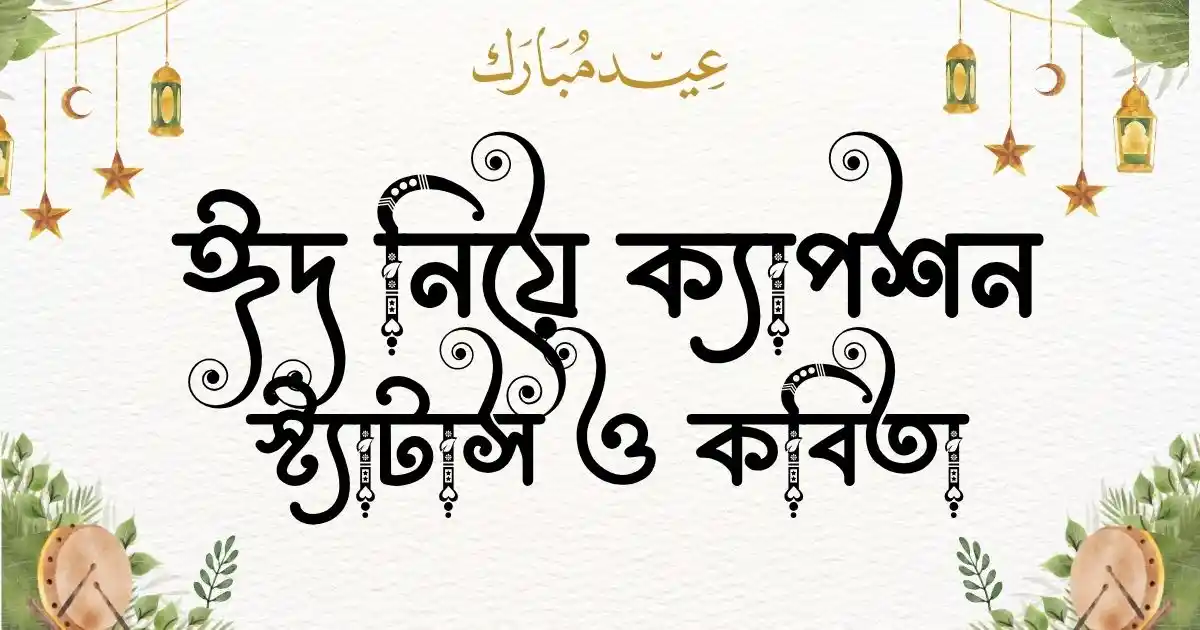 عِيد مُبَارَك
ঈদ নিয়ে ক্যাপশন
স্ট্যাটাস ও কবিতা